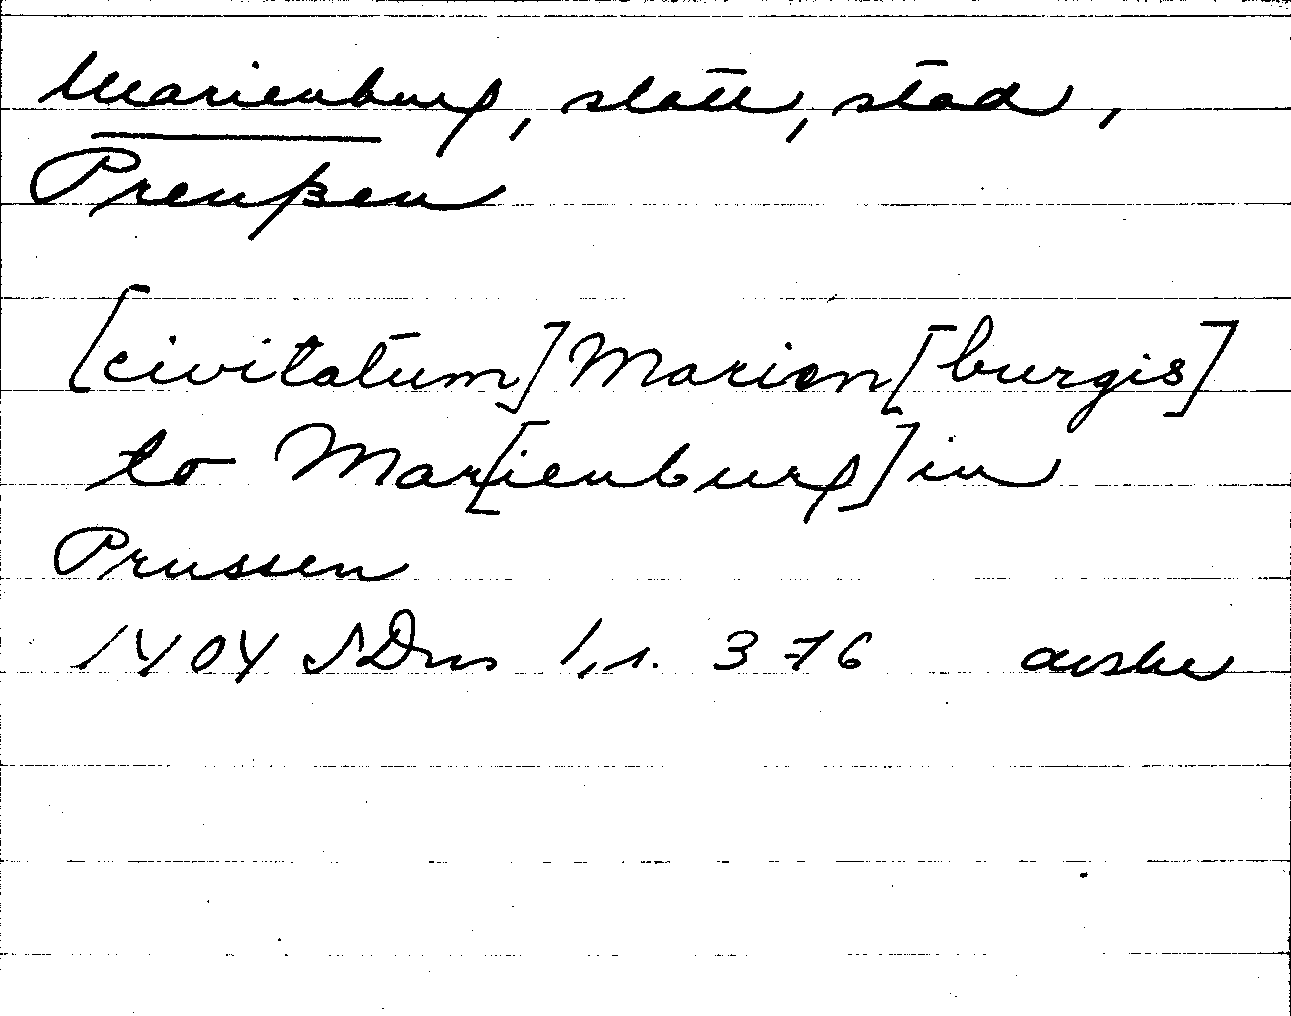 Marienburg, slott, stad,
Preußen
[civitatum] Marien[burgis]
to Mar[ienburg] in
Prussen
1404 SDns 1, s. 376 avskr